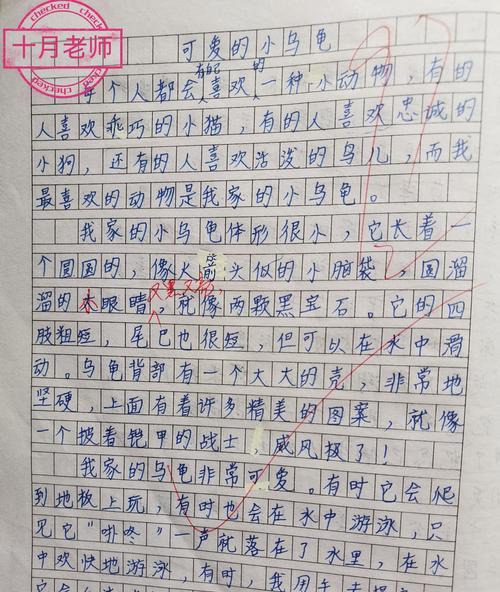 checked
十月老师
checked
可爱的小乌龟
有自己 的
每个人都会喜欢一种小动物，有的
人喜欢乖巧的小猫，有的人喜欢忠诚的
小狗，还有的人喜欢活泼的鸟儿，而我
最喜欢的动物是我家的小乌龟。
我家的小乌龟体形很小，它长着一
个圆圆的，像火箭头似的小脑袋，圆溜
溜的 眼睛又黑又亮，就像两颗黑宝石。它的四
肢粗短，尾巴也很短，但可以在水中滑
动。乌龟背部有一个大大的壳，非常地
坚硬，上面有着许多精美的图案，就像
一个披着铠甲的战士，威风极了！
我家的乌龟非常可爱。有时它会爬
到地板上玩，有时也会在水中游泳，只
见它“卟咚”一声就落在了水里，在水
中欢快地游泳，有时，我用手去